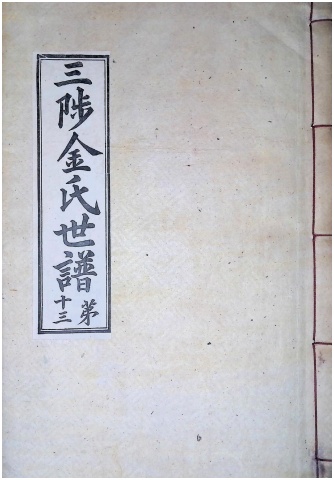 三陟金氏世譜
第十三